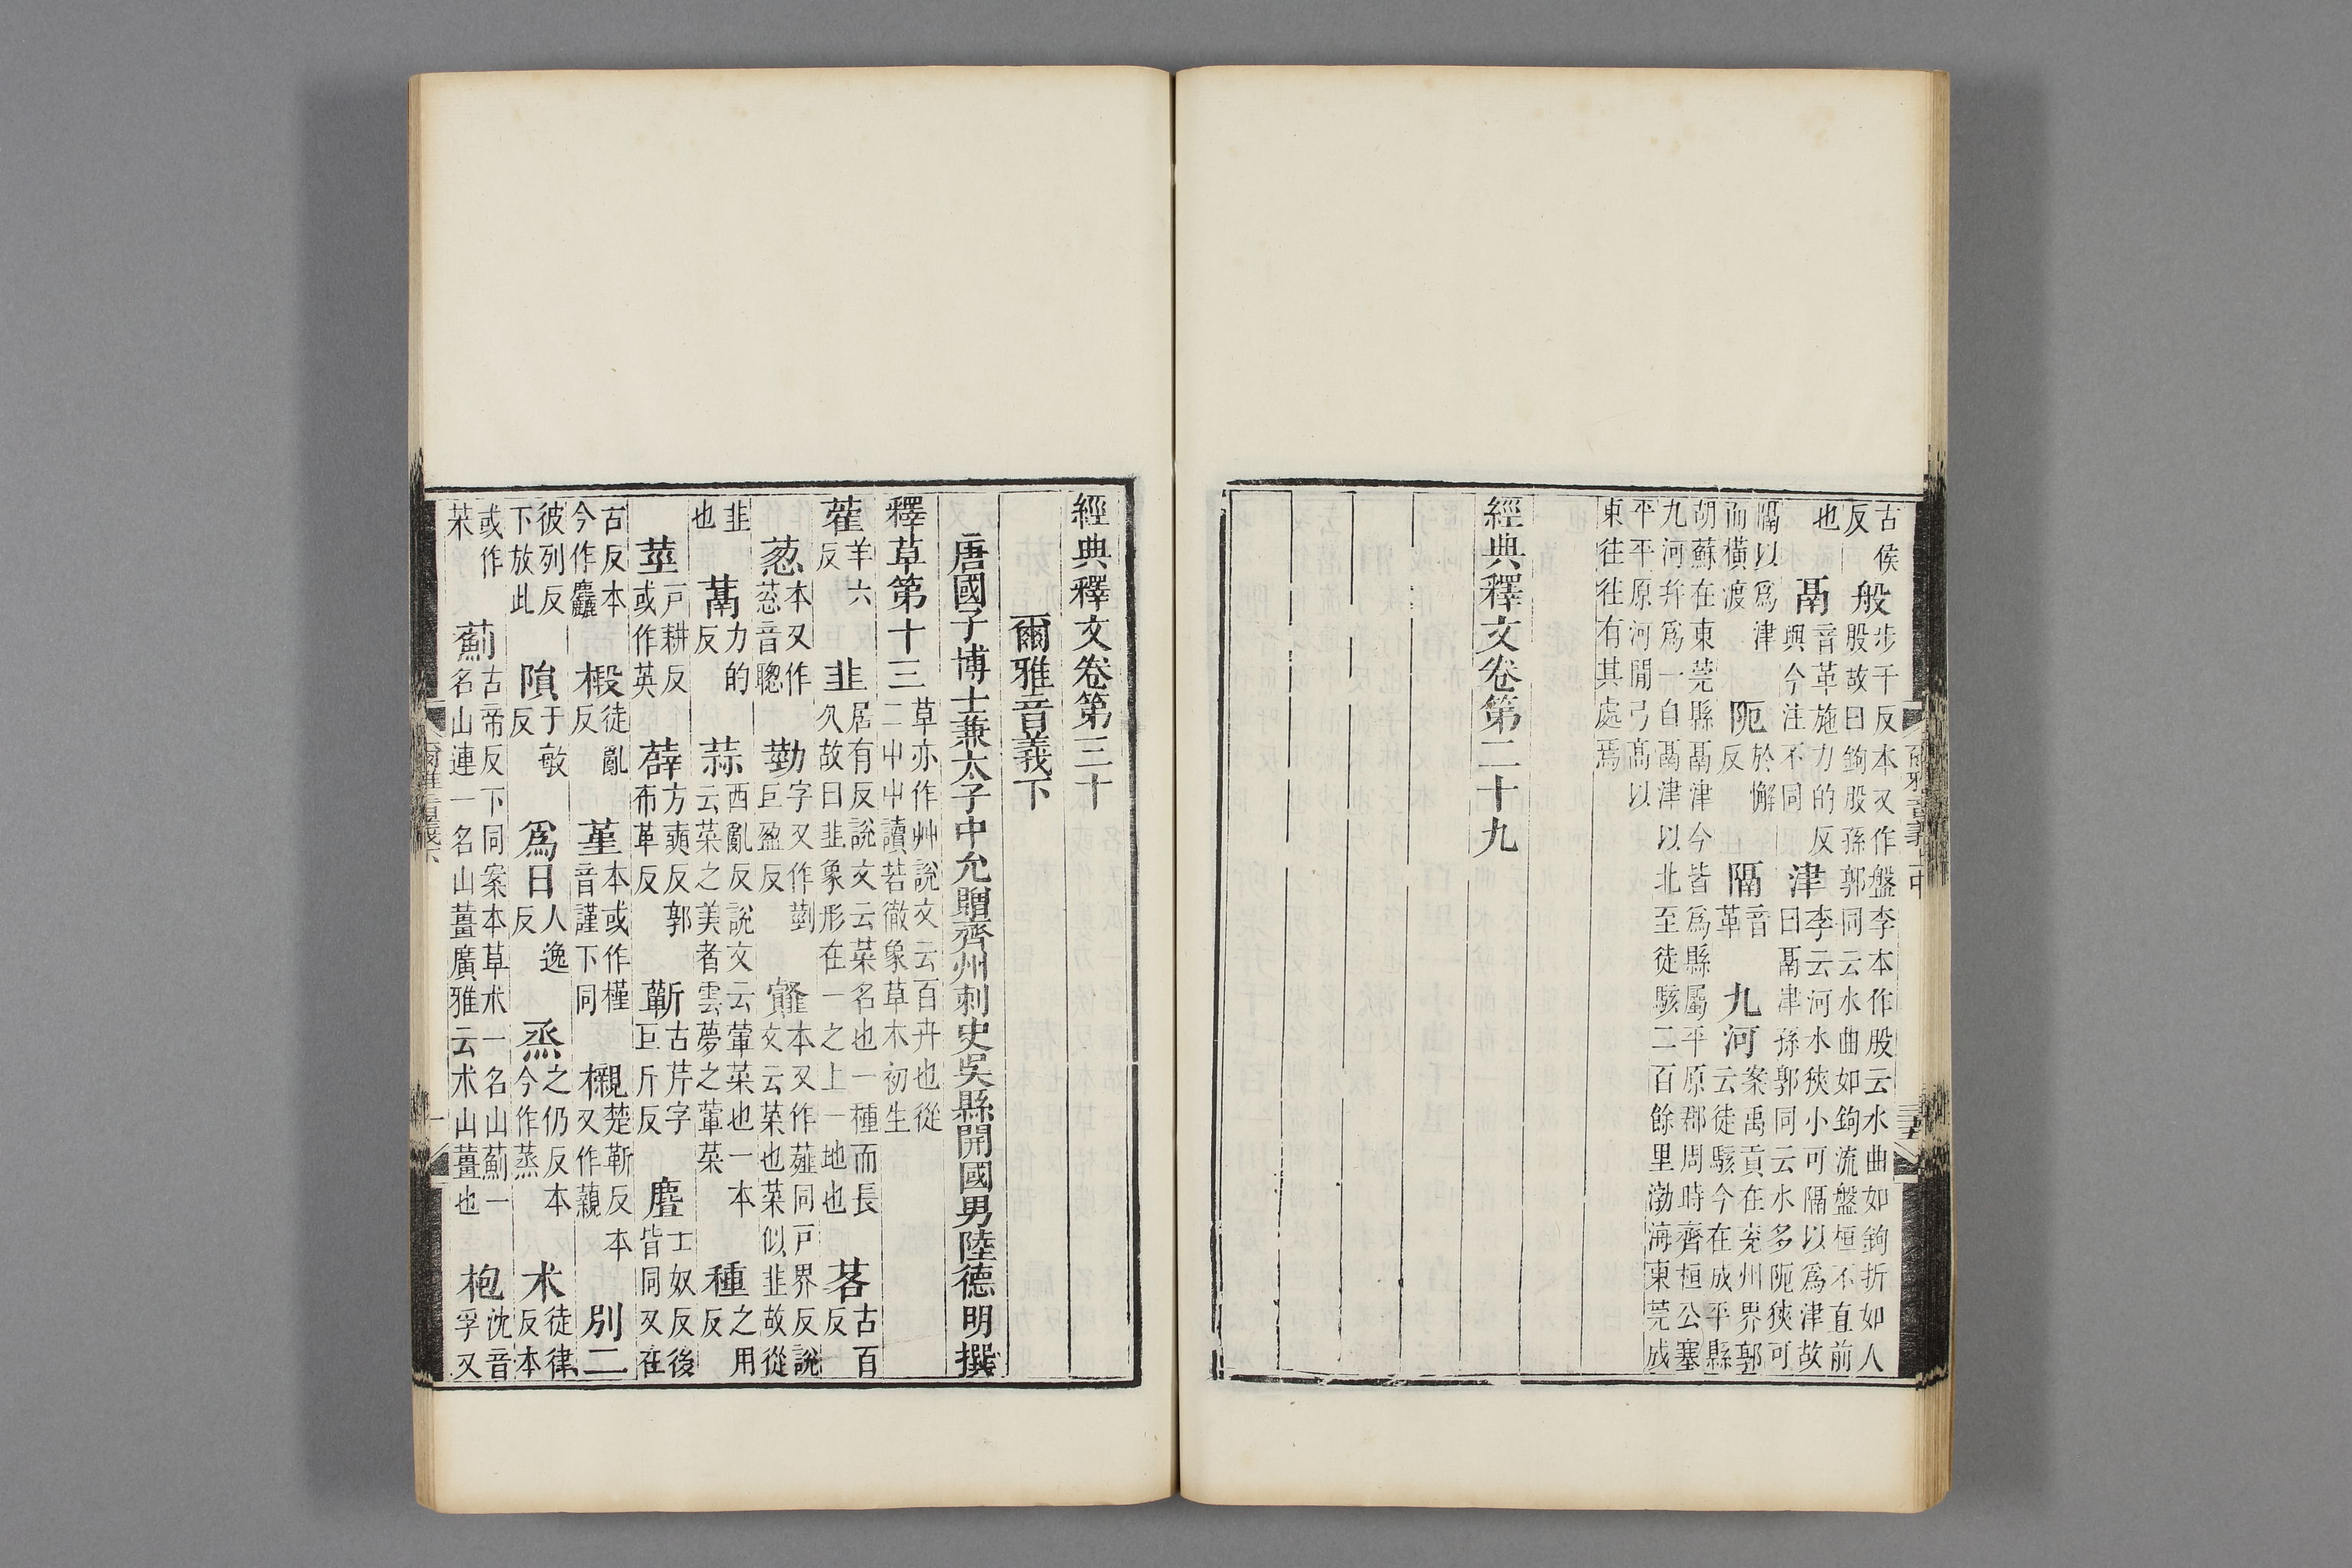 古侯反般步干反本又作盤李本作股云水曲如鉤折如人股故曰鉤股孫郭同云水曲如鉤流盤桓不直前
也鬲音革施力的反與今注不同津李云河水狹小可隔以爲津故曰鬲津孫郭同云水多阨狹可
隔以爲津而橫渡阨於懈反隔音革九河案禹貢在兖州界郭云徒駭今在成平縣
胡蘇在東莞縣鬲津今皆爲縣屬平原郡周時齊桓公塞九河并爲一自鬲津以北至徒駭二百餘里渤海東莞成
平平原河閒弓高以東往往有其處焉
經典釋文卷第二十九
經典釋文卷第三十
爾雅音義下
唐國子博士兼太子中允贈齊州刺史吳縣開國男陸德明撰
釋草第十三草亦作艸說文云百卉也從二屮屮讀若徹象草木初生
蒮羊六反韭居有反說文云菜名也一種而長久故曰韭象形在一之上一地也茖古百反
葱本又作蔥音聰勁字又作葝巨盈反䪥本又作薤同戶界反說文云菜也葉似韭故從
韭也䔉力的反蒜西亂反說文云葷菜也一本云菜之美者雲夢之葷菜種之用反
莖戶耕反或作英薜方奭反郭布革反蘄古芹字巨斤反麆士奴反後皆同又在
古反本今作麤椴徒亂反堇本或作槿音謹下同櫬楚靳反本又作藽別二
彼列反下放此隕于敏反爲日人逸反烝之仍反本今作蒸朮徒律反本
或作荣薊古帝反下同案本草朮一名山薊一名山連一名山薑廣雅云朮山薑也枹沈音孚又
爾雅音義下
一